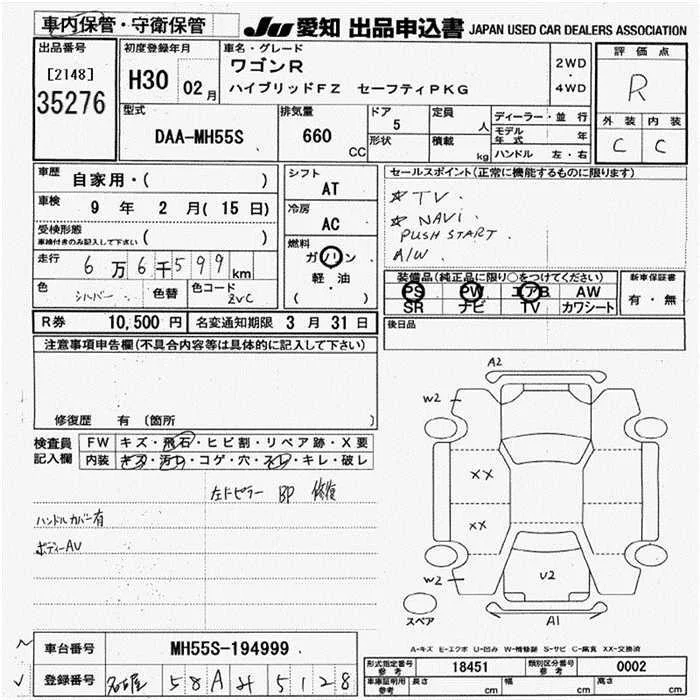 車内保管・守衛保管
JU 愛知 出品申込書 JAPAN USED CAR DEALERS ASSOCIATION
出品番号
[2148]
35276
初度登録年月
H30 02月
車名・グレード
ワゴンR
ハイブリッドFZ セーフティPKG
2WD
・
4WD
評価点
R
外装 内装
C C
型式
DAA-MH55S
排気量
660
CC
ドア
5
形状
定員
人
積載
kg
ディーラー・並行
モデル年式 年
ハンドル 左・右
車歴
自家用・( )
車検
9 年 2 月( 15 日)
受検形態
車検付きのみ記入して下さい ( )
走行
6万6千599km
色
シルバー
色替
色コード
ZVC
シフト
AT
冷房
AC
燃料
ガソリン
軽・油
( )
セールスポイント(正常に機能するものに限ります)
☆TV.
☆NAVi.
PUSH START.
A/W.
装備品(純正品に限り○をつけてください)
PS PW エアB AW
SR ナビ TV カワシート
新車保証書
有・無
後日品
R券 10,500 円 名変通知期限 3 月 31 日
注意事項申告欄(不具合内容等は具体的に記入して下さい)
修復歴 有 (箇所 )
検査員記入欄
FW キズ・飛石・ヒビ割・リペア跡・X要
内装 キズ・汚れ・コゲ・穴・スレ・キレ・破レ
左ピラー BP 修復
ハンドルカバー有
ボディーAU
A2
W2
XX
XX
W2
U2
A1
スペア
A-キズ E-エクボ U-凹み W-補修跡 S-サビ C-腐食 XX-交換済
車台番号 MH55S-194999
登録番号 名古屋 58A 5128
形式指定番号 参考 18451
類別区分番号 参考 0002
車庫証明用 参考 長さ cm 幅 cm 高さ cm